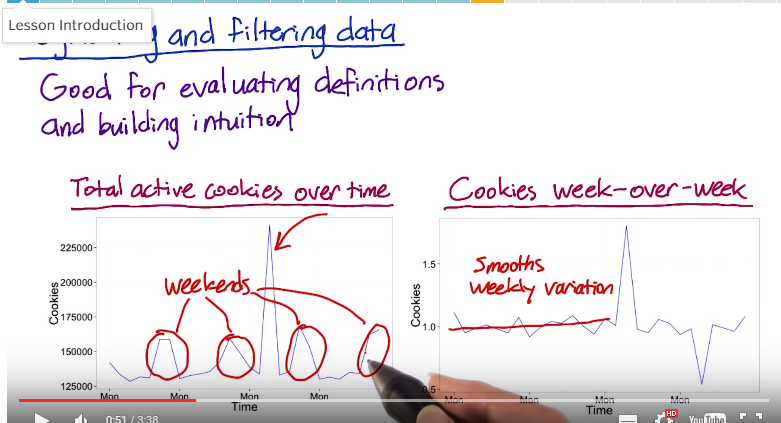 Lesson Introduction
and filtering data
Good for evaluating definitions
and building intuition
Total active cookies over time
Cookies week-over-week
225000
200000
175000
150000
125000
Cookies
weekends
Mon Mon Mon Mon
Time
1.5
1.0
0.5
Cookies
Smooths
weekly variation
Mon Mon Mon Mon
Time
0:51 / 3:38
HD
YouTube